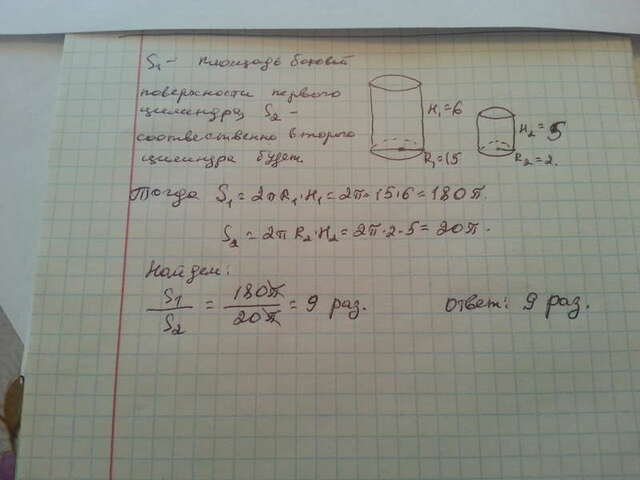 S₁ - площадь боковой
поверхности первого
цилиндра, S₂ -
соответственно второго
цилиндра будет.
H₁=6
R₁=15
H₂=5
R₂=2.
Тогда S₁=2πR₁·H₁=2π·15·6=180π.
S₂=2πR₂·H₂=2π·2·5=20π.
Найдем:
S₁/S₂ = 180π/20π = 9 раз. ответ: 9 раз.